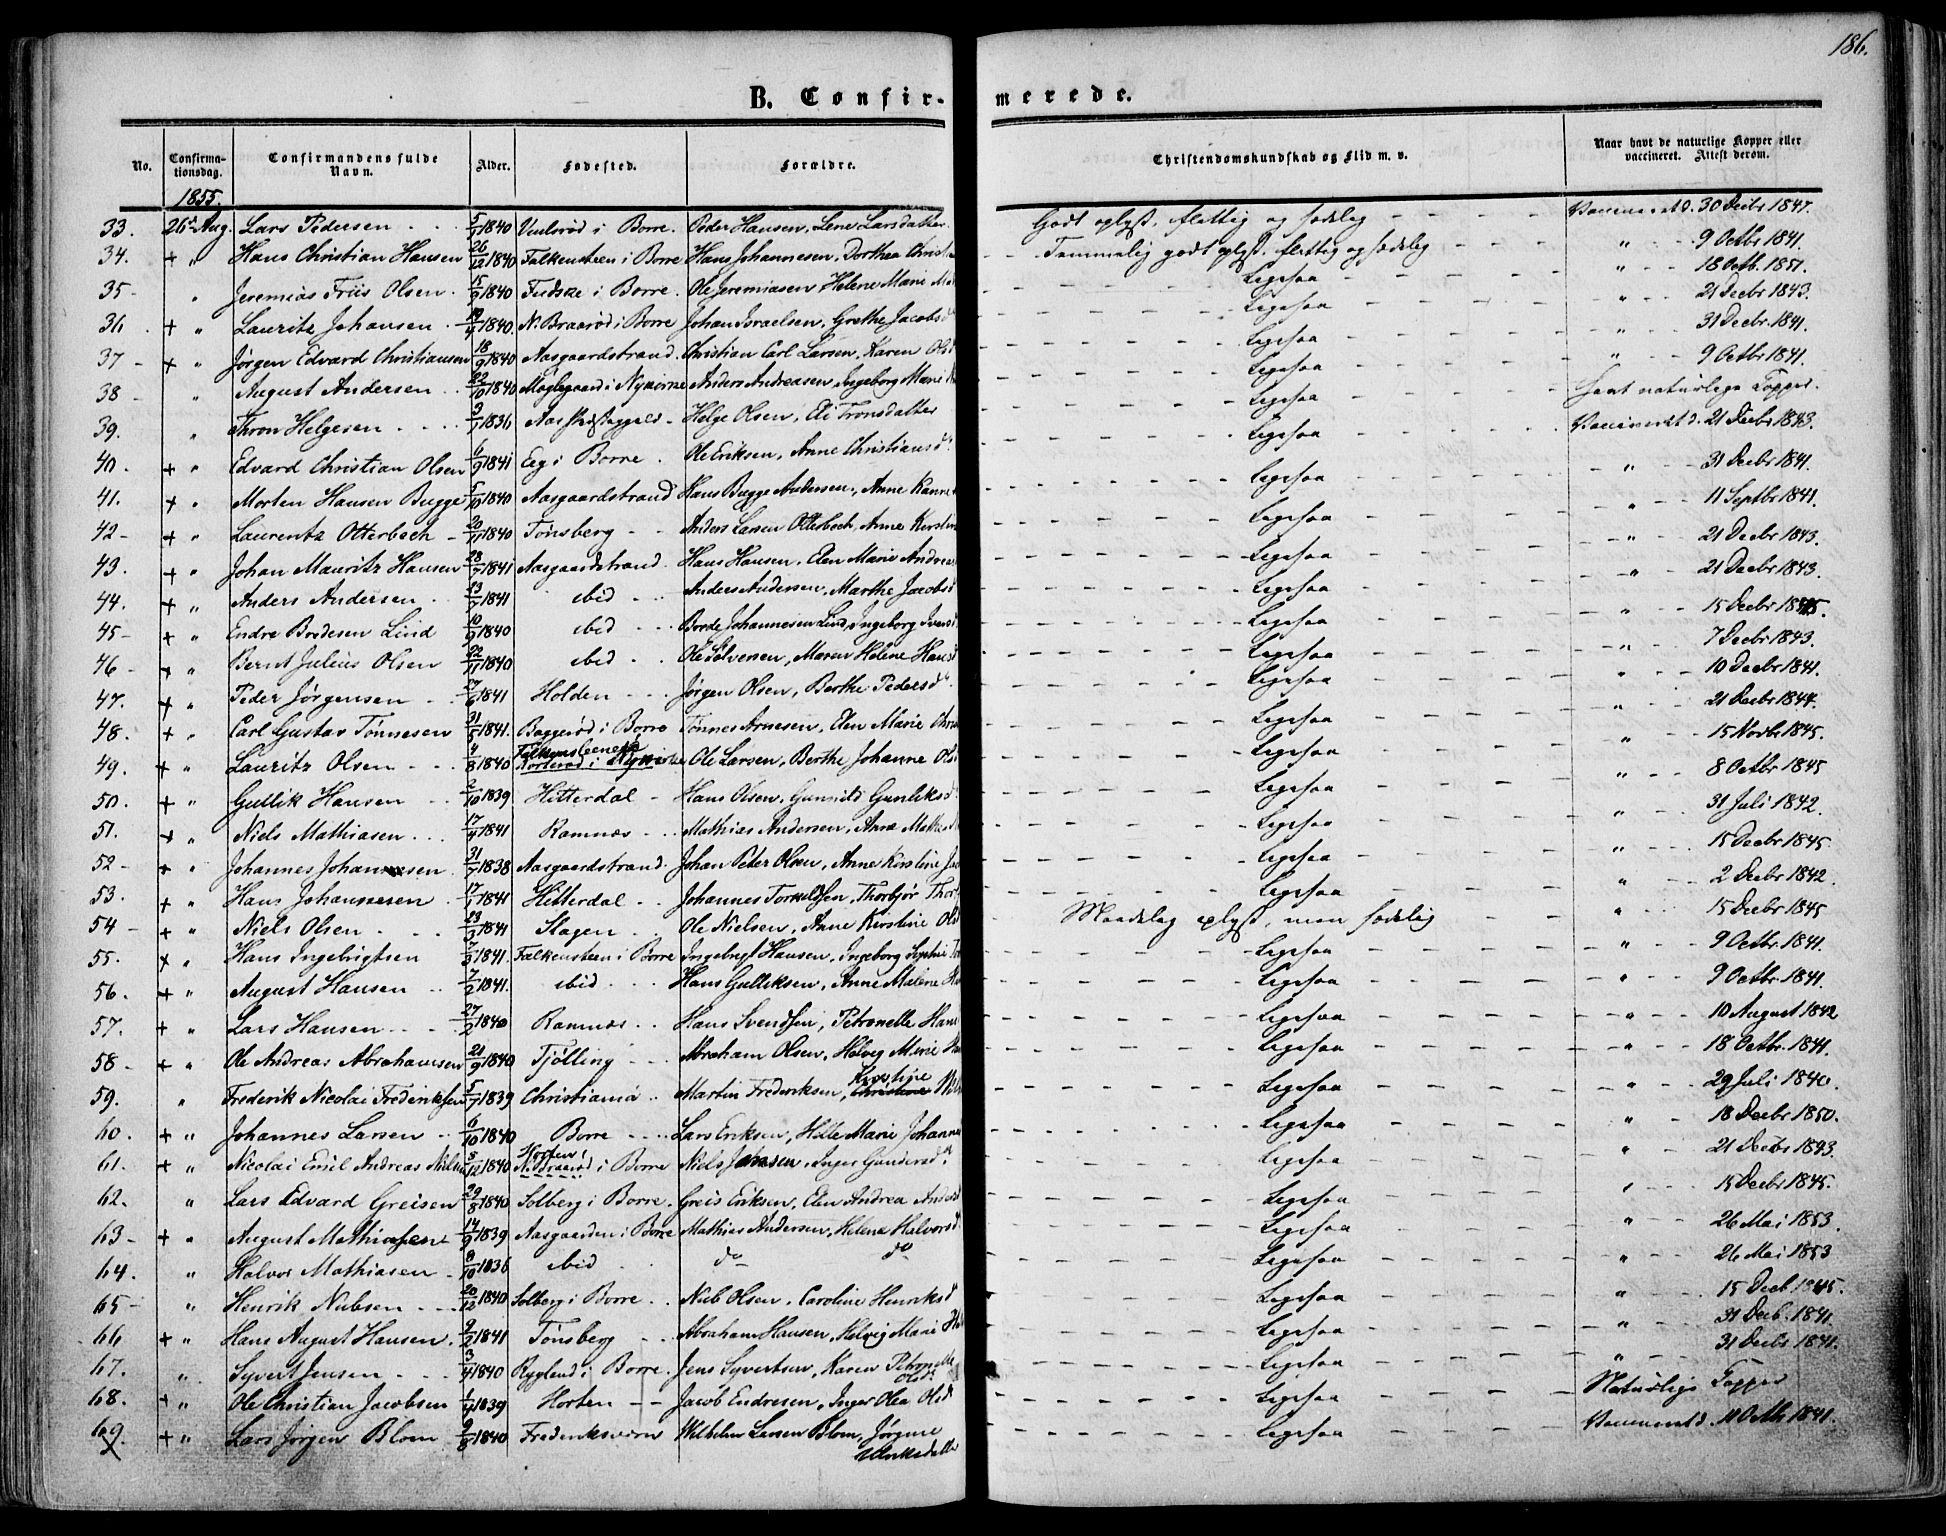 186.
B. Confir- merede.
No. Confirma-tionsdag. Confirmandens fulde Navn. Alder. Fødested. Forældre. Christendomskundskab og Flid m. v. Naar havt de naturlige Kopper eller vaccineret. Attest derom.
1855.
33. 26de Aug. Lars Pedersen 1840 i Borre. Peder Hansen, Lene Larsdatter Godt oplyst, flittig og sædelig 30 Decbr 1847.
34. + " Hans Christian Hansen 26/12 1840 Falkensteen i Borre Hans Johannesen, Dorthea Temmelig godt oplyst, flittig og sædelig " 9 Octbr 1841.
35 " Jeremias Friis Olsen 1840 i Borre. Ole Jeremiasen, Helene Marie Ligesaa " 18 Octb. 1851.
36 + " Lauritz Johansen 1840. N. Braarød i Borre Johan Israelsen, Grethe Jacobsd Ligesaa " 21 Decbr 1843.
37 + " Jørgen Edvard Christiansen 18/9 1840 Aasgaardstrand. Christian Carl Larsen, Karen Olsd Ligesaa " 31 Decbr 1841.
38 " August Andersen 22/10 1840 i Nykirke Anders Andreasen, Ingeborg Marie Ligesaa " 9 Octbr 1841.
39. " Thron Helgesen 1836 Helge Olsen, Eli Tronsdatter Ligesaa havt naturlige Kopper.
40. + " Edvard Christian Olsen 1841 Eeg i Borre. Ole Eriksen, Anne Christiansd Ligesaa 21 Decbr 1843.
41. + " Morten Hansen Bugge 5/10 1840 Aasgaardstrand Hans Bugge Andersen, Anne Ligesaa " 31 Decbr 1841.
42 + " Laurentz Otterbech 20/11 1840 Tønsberg Anders Larsen Otterbech, Anne Kirstine Ligesaa " 11 Septbr 1841.
43. + " Johan Mauritz Hansen 1841 Aasgaardstrand. Hans Hansen, Elen Marie Ligesaa " 21 Decbr 1843.
44. + " Anders Andersen 1841 ibid Anders Andersen, Marthe Jacobsd Ligesaa " 21 Decbr 1843.
45 + " Endre Bredesen Lind 10/9 1840 ibid Brede Johannesen Lind, Ingeborg Ligesaa " 15 Decbr 1845.
46 + " Bernt Julius Olsen 22/11 1840 ibid Ole Maren Helene Hansd Ligesaa " 7 Decbr 1843.
47. + " Peder Jørgensen 1841 Holden Jørgen Olsen, Berthe Pedersd Ligesaa " 10 Decbr 1841.
48. + " Carl Gustav Tønnesen 1841. Baggerød i Borre Tønnes Arnesen, Elen Marie Ligesaa " 21 Decbr 1844.
49. + " Lauritz Olsen 4/8 1840 i Nykirke Ole Larsen, Berthe Johanne Ols Ligesaa " 15 Novbr 1845.
50. + " Gullik Hansen 2/10 1839 Hitterdal Hans Olsen, Gunnild Gunliksd Ligesaa " 8 Octbr 1845
51. + " Niels Mathiasen 1841 Ramnæs Mathias Andersen, Anne Ligesaa " 31 Juli 1842.
52 + " Johannes Johannesen 1838 Aasgaardstrand. Johan Peter Olsen, Anne Kirstine Ligesaa " 15 Decbr 1845.
53. + " Hans Johannesen 1841 Hitterdal Johannes Thorbjør Ligesaa " 2 Decbr 1842.
54 + " Niels Olsen 1841 Slagen Ole Nielsen, Anne Kirstine Olsd Maadelig oplyst, men sædelig " 15 Decbr 1845
55. + " Hans Ingebrigtsen 1841. Falkensteen i Borre Ingebrigt Hansen, Ingeborg Ligesaa " 9 Octbr. 1841.
56. + " August Hansen 7/2 1841. ibid Hans Gulliksen, Anne Malene Ligesaa " 9 Octbr. 1841.
57. + " Lars Hansen 1840 Ramnæs Hans Svendsen, Petronelle Hans Ligesaa " 10 August 1842
58 + " Ole Andreas Abrahamsen 21/9 1840 Tjølling Abraham Olsen, Helvig Marie Ligesaa " 18 Octbr. 1841.
59. " Frederik Nicolai Frederiksen 1839 Christiania Martin Frederiksen, Kirstine Ligesaa " 29 Juli 1840.
60. + " Johannes Larsen 6/10 1840 Borre Lars Eriksen, Helle Marie Johannes Ligesaa " 18 Decbr 1850.
61. + " Nicolai Emil Andreas Nielsen 1840 Horten N. Braarød i Borre Niels Jansen, Inger Gundersd Ligesaa " 21 Decbr 1843.
62. " Lars Edvard Greisen 29/8 1840 Solberg i Borre. Greis Eriksen, Elen Andrea Anders Ligesaa " 15 Decbr 1845.
63 + " August Mathiasen 14/9 1839 Aasgaarden i Borre Mathias Andersen, Helene Halvorsd Ligesaa " 26 Mai 1853.
64. " Halvor Mathiasen 8/10 1836 ibid do do Ligesaa " 26 Mai 1853
65 " Henrik Nielsen 20/12 1840 Solberg i Borre Niels Olsen, Caroline Henriksd Ligesaa " 15 Decb 1845.
66 + " Hans August Hansen. 1841 Tønsberg Abraham Hansen, Helvig Marie Ligesaa " 31 Decb. 1841.
67. " Syvert Jensen 1840 i Borre. Jens Syvertsen, Karen Petronelle Olsd. Ligesaa " 31 Decbr 1841.
68. + " Ole Christian Jacobsen 1839 Horten Jacob Endresen, Inger Olea Olsd Ligesaa Naturlige Kopper
69. + " Lars Jørgen Blom 9/8 1840 Frederiksværn Wilhelm Larsen Blom, Jørgine Ulriksdatter Ligesaa 11 Octbr 1841.